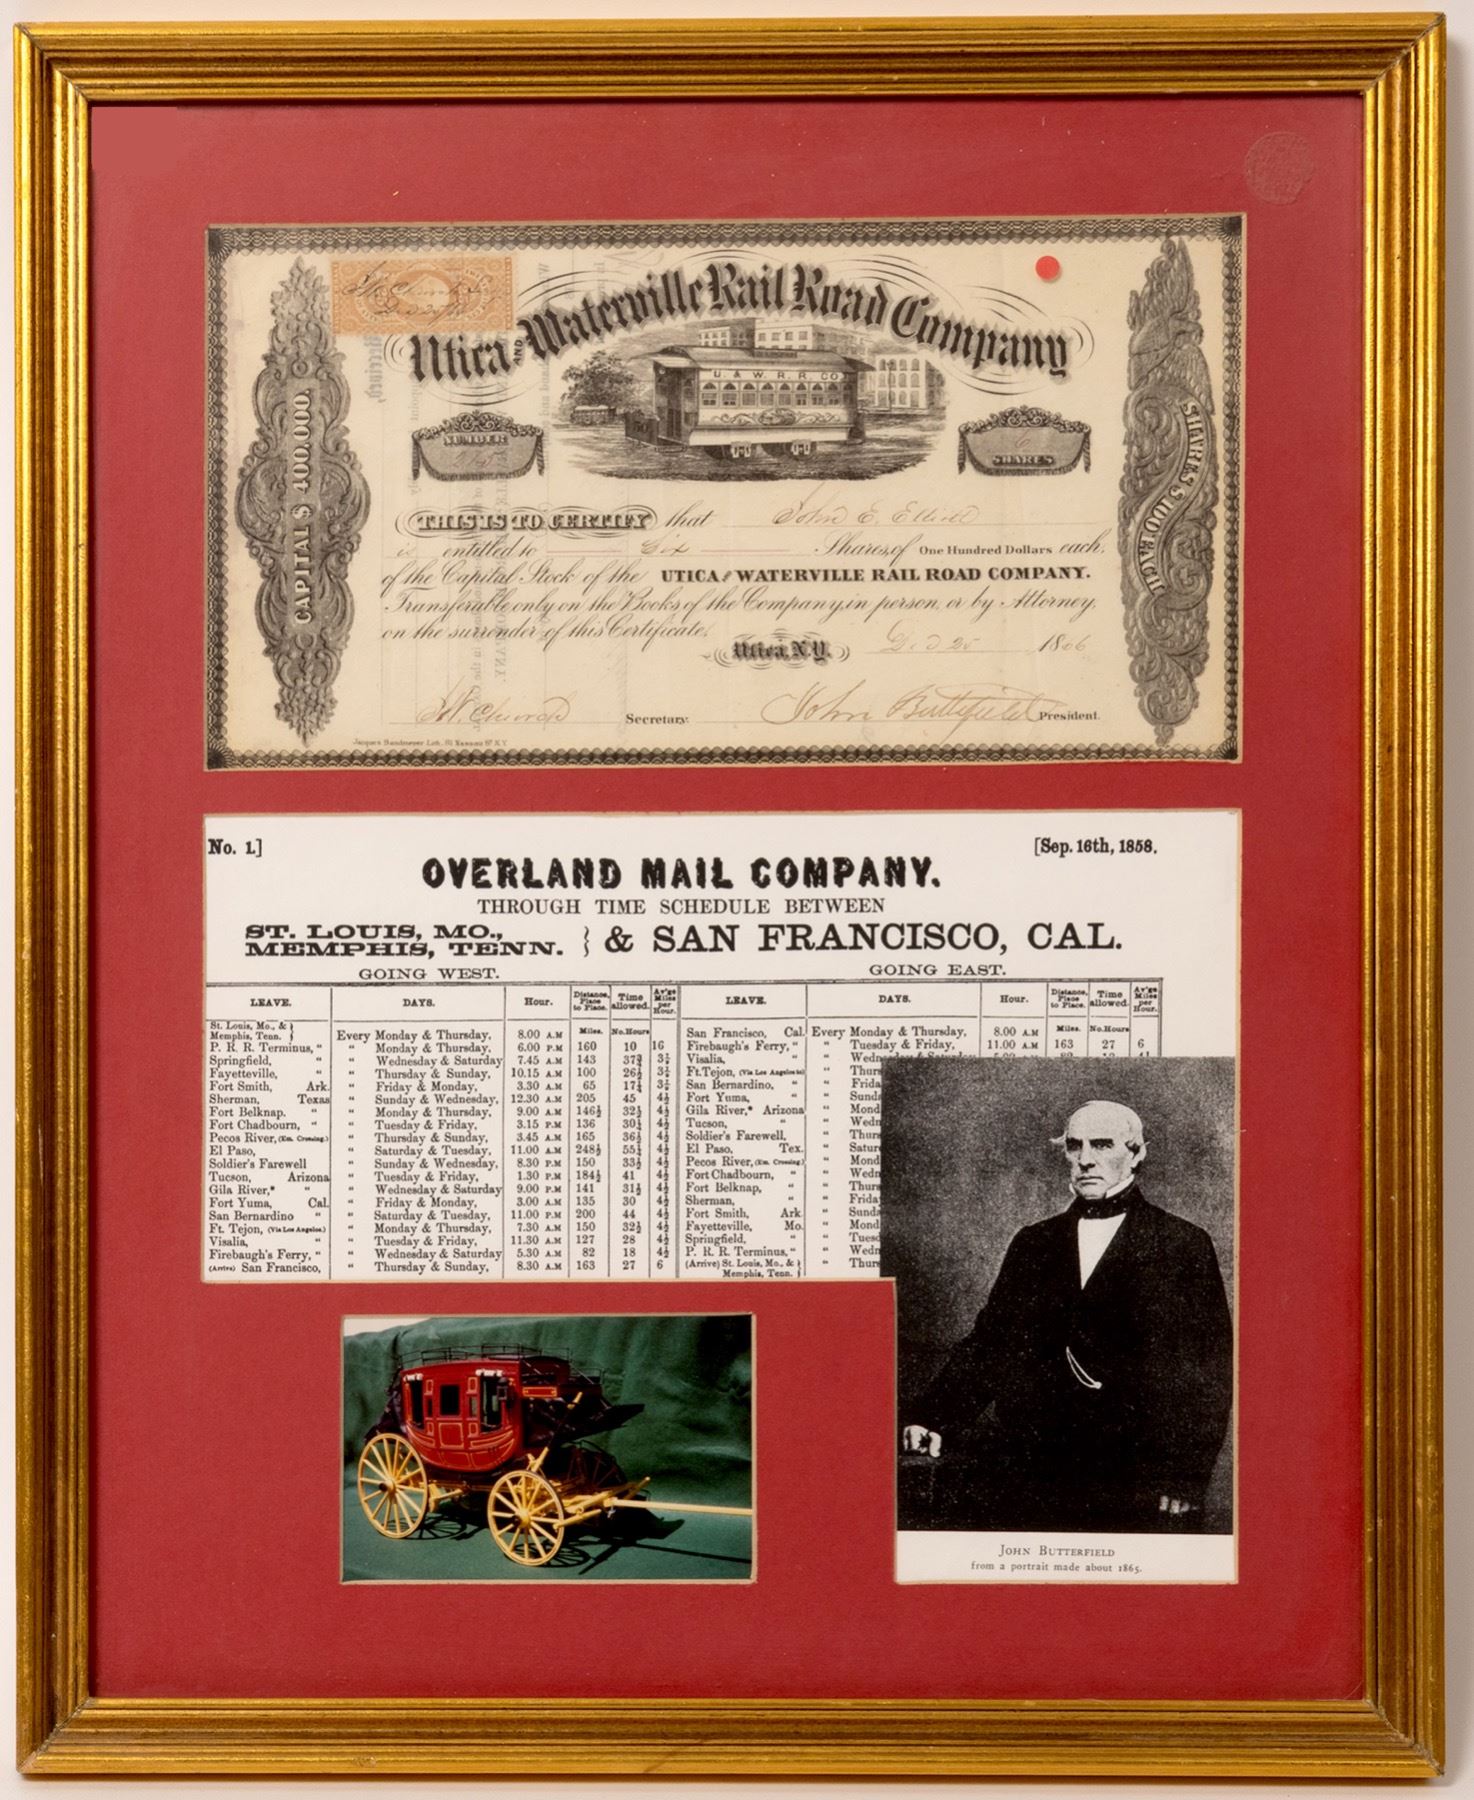 Utica AND Waterville Rail Road Company
CAPITAL $ 400.000.
U. & W. R. R. CO
NUMBER
6
SHARES
SHARES $100 EACH
THIS IS TO CERTIFY that John E. Elliott
is entitled to Six Shares, of One Hundred Dollars each,
of the Capital Stock of the UTICA and WATERVILLE RAIL ROAD COMPANY.
Transferable only on the Books of the Company, in person, or by Attorney,
on the surrender of this Certificate.
Utica, N.Y. Dec 25 1866
W. Church Secretary. John Butterfield President.
No. 1.] [Sep. 16th, 1858.
OVERLAND MAIL COMPANY.
THROUGH TIME SCHEDULE BETWEEN
ST. LOUIS, MO.,
MEMPHIS, TENN. } & SAN FRANCISCO, CAL.
GOING WEST.
LEAVE. DAYS. Hour. Distance, Place to Place. Time allowed. Av'ge Miles per Hour.
St. Louis, Mo., & }
Memphis, Tenn. } Every Monday & Thursday, 8.00 A.M Miles. No. Hours
P. R. R. Terminus, " " Monday & Thursday, 6.00 P.M 160 10 16
Springfield, " " Wednesday & Saturday 7.45 A.M 143 37¾ 3¾
Fayetteville, " " Thursday & Sunday, 10.15 A.M 100 26½ 3¾
Fort Smith, Ark. " Friday & Monday, 3.30 A.M 65 17¼ 3¾
Sherman, Texas " Sunday & Wednesday, 12.30 A.M 205 45 4½
Fort Belknap. " " Monday & Thursday, 9.00 A.M 146½ 32½ 4½
Fort Chadbourn, " " Tuesday & Friday, 3.15 P.M 136 30¼ 4½
Pecos River, (Em. Crossing.) " Thursday & Sunday, 3.45 A.M 165 36½ 4½
El Paso, " Saturday & Tuesday, 11.00 A.M 248½ 55¼ 4½
Soldier's Farewell " Sunday & Wednesday, 8.30 P.M 150 33½ 4½
Tucson, Arizona " Tuesday & Friday, 1.30 P.M 184½ 41 4½
Gila River,* " " Wednesday & Saturday 9.00 P.M 141 31½ 4½
Fort Yuma, Cal. " Friday & Monday, 3.00 A.M 135 30 4½
San Bernardino " " Saturday & Tuesday, 11.00 P.M 200 44 4½
Ft. Tejon, (Via Los Angeles.) " Monday & Thursday, 7.30 A.M 150 32½ 4½
Visalia, " " Tuesday & Friday, 11.30 A.M 127 28 4½
Firebaugh's Ferry, " " Wednesday & Saturday 5.30 A.M 82 18 4½
(Arrive) San Francisco, " Thursday & Sunday, 8.30 A.M 163 27 6
GOING EAST.
LEAVE. DAYS. Hour. Distance, Place to Place. Time allowed. Av'ge Miles per Hour.
San Francisco, Cal. Every Monday & Thursday, 8.00 A.M Miles. No. Hours
Firebaugh's Ferry, " " Tuesday & Friday, 11.00 A.M 163 27 6
Visalia, "
Ft. Tejon, (Via Los Angeles to) " Thurs
San Bernardino, " " Frida
Fort Yuma, " " Sund
Gila River,* Arizona " Mond
Tucson, " " Wedn
Soldier's Farewell, " Thurs
El Paso, Tex. " Satur
Pecos River, (Em. Crossing.) " Mond
Fort Chadbourn, " " Wedn
Fort Belknap, " " Thurs
Sherman, " " Frida
Fort Smith, Ark. " Sunda
Fayetteville, Mo. " Mond
Springfield, " " Tuesd
P. R. R. Terminus, " " Wedn
(Arrive) St. Louis, Mo., & }
Memphis, Tenn. } " Thurs
JOHN BUTTERFIELD
from a portrait made about 1865.